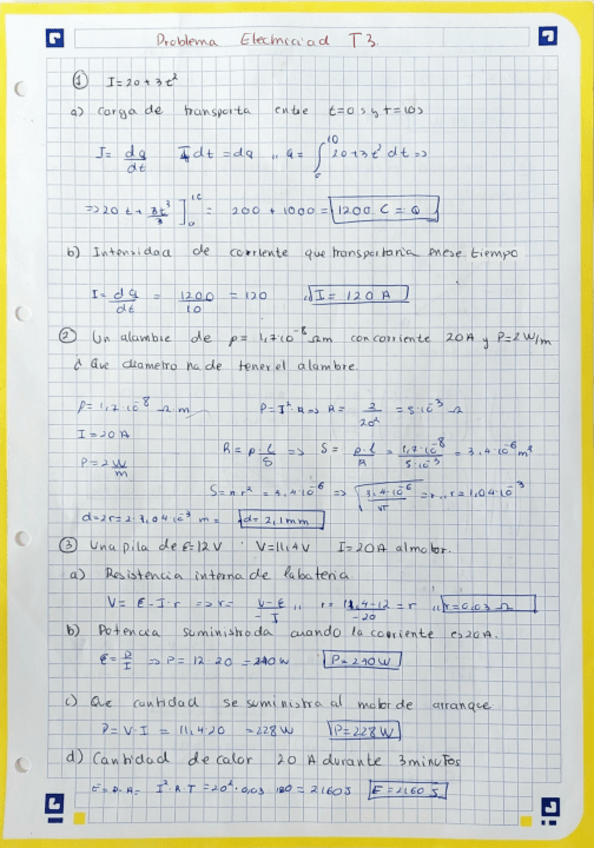 Problema Electricidad T3.
① I = 20 + 3t²
a) Carga de transporta entre t=0s y t=10s
I = dq/dt I dt = dq ,, Q = ∫₀¹⁰ 20+3t² dt =>
=> 20t + 3t³/3 ]₀¹⁰ = 200 + 1000 = 1200 C = Q
b) Intensidad de corriente que transportaria en ese tiempo
I = dq/dt = 1200/10 = 120 I = 120 A
② Un alambre de ρ = 1,7·10⁻⁸ Ωm con corriente 20A y P=2W/m
¿ Que diametro ha de tener el alambre.
ρ = 1,7·10⁻⁸ Ω·m P = I²·R => R = 2/20² = 5·10⁻³ Ω
I = 20 A
R = ρ l/S => S = ρ·l/R = 1,7·10⁻⁸/5·10⁻³ = 3,4·10⁻⁶ m²
P = 2 W/m
S = π r² = 3,4·10⁻⁶ => √3,4·10⁻⁶/π = r ,, r = 1,04·10⁻³
d = 2r = 2·1,04·10⁻³ m = d = 2,1mm
③ Una pila de ε = 12V V = 11,4V I = 20A al motor.
a) Resistencia interna de la bateria
V = ε - I·r => r = V-ε/-I ,, r = 11,4-12/-20 = r ,, r = 0,03 Ω
b) Potencia suministrada cuando la corriente es 20A.
ε = P/I => P = 12·20 = 240W P = 240W
c) Que cantidad se suministra al motor de arranque
P = V·I = 11,4·20 = 228W P = 228W
d) Cantidad de calor 20 A durante 3 minutos
I²·R·T = 20²·0,03 180 = 2160J E = 2160 J